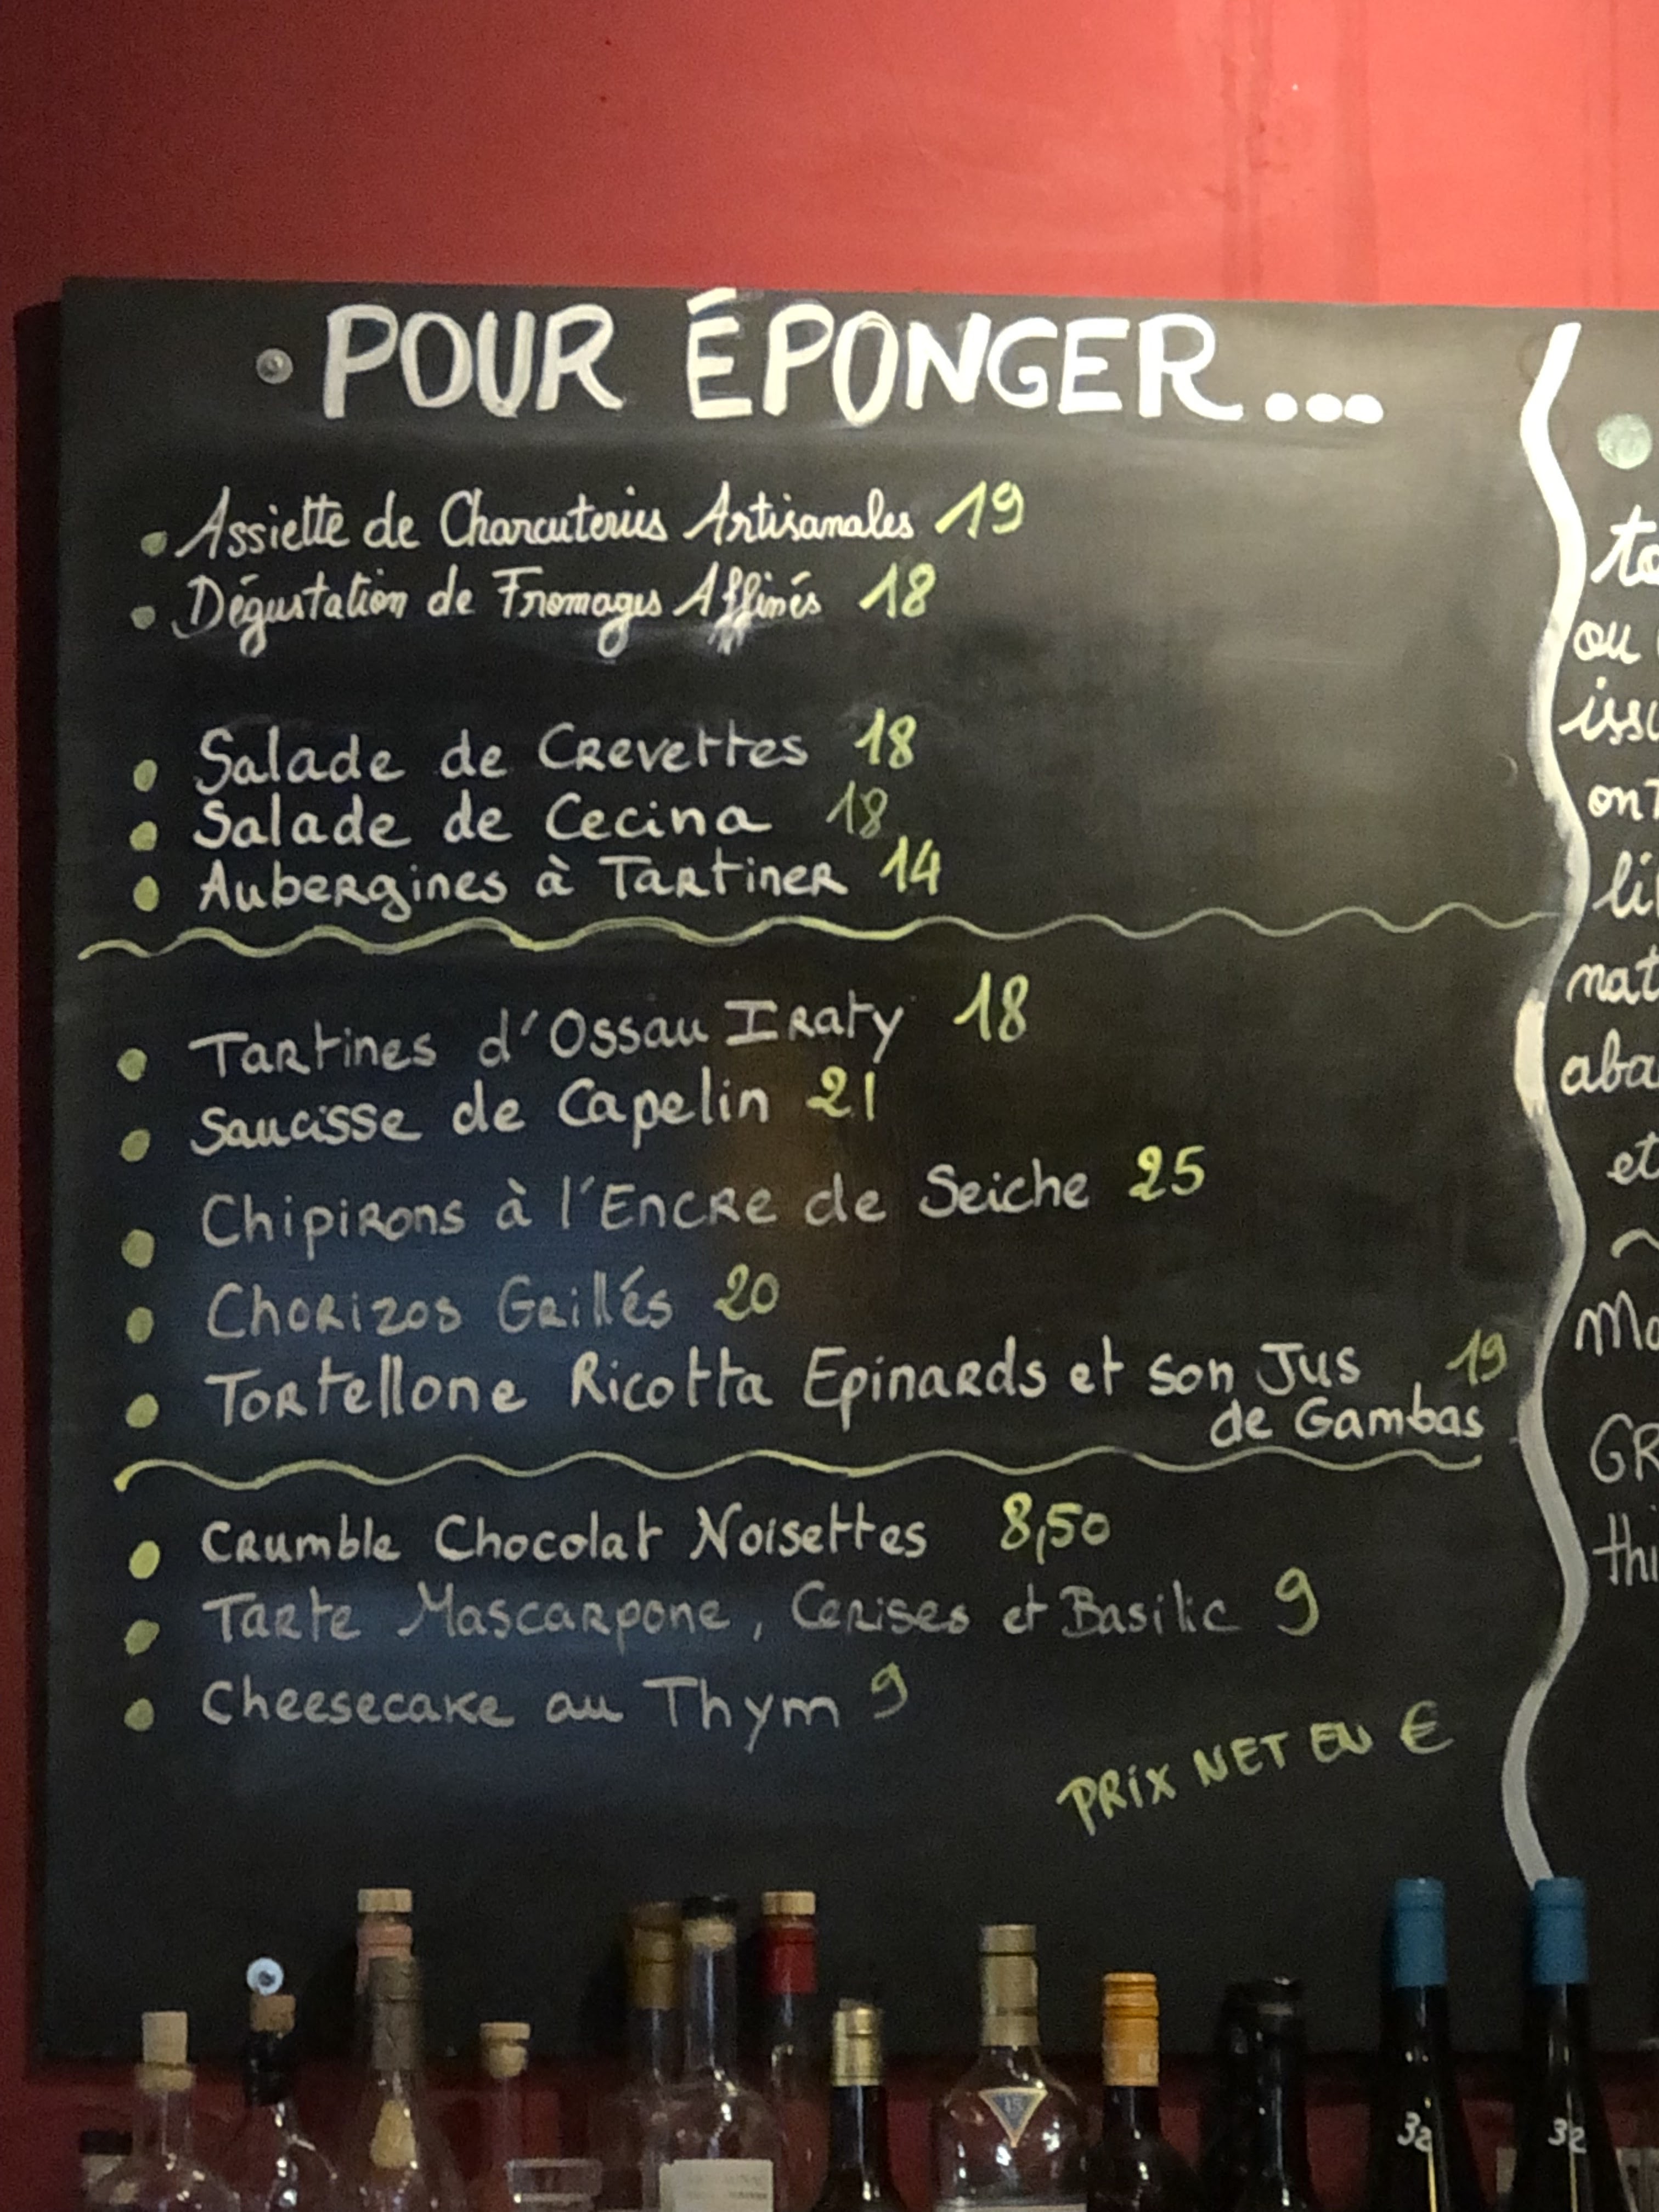 POUR ÉPONGER...
Assiette de Charcuteries Artisanales 19
Dégustation de Fromages Affinés 18
Salade de Crevettes 18
Salade de Cecina 18
Aubergines à Tartiner 14
Tartines d'Ossau Iraty 18
Saucisse de Capelin 21
Chipirons à l'Encre de Seiche 25
Chorizos Grillés 20
Tortellone Ricotta Epinards et son Jus 19
de Gambas
Crumble Chocolat Noisettes 8,50
Tarte Mascarpone, Cerises et Basilic 9
Cheesecake au Thym 9
PRIX NET EN €
ou
et
32
32